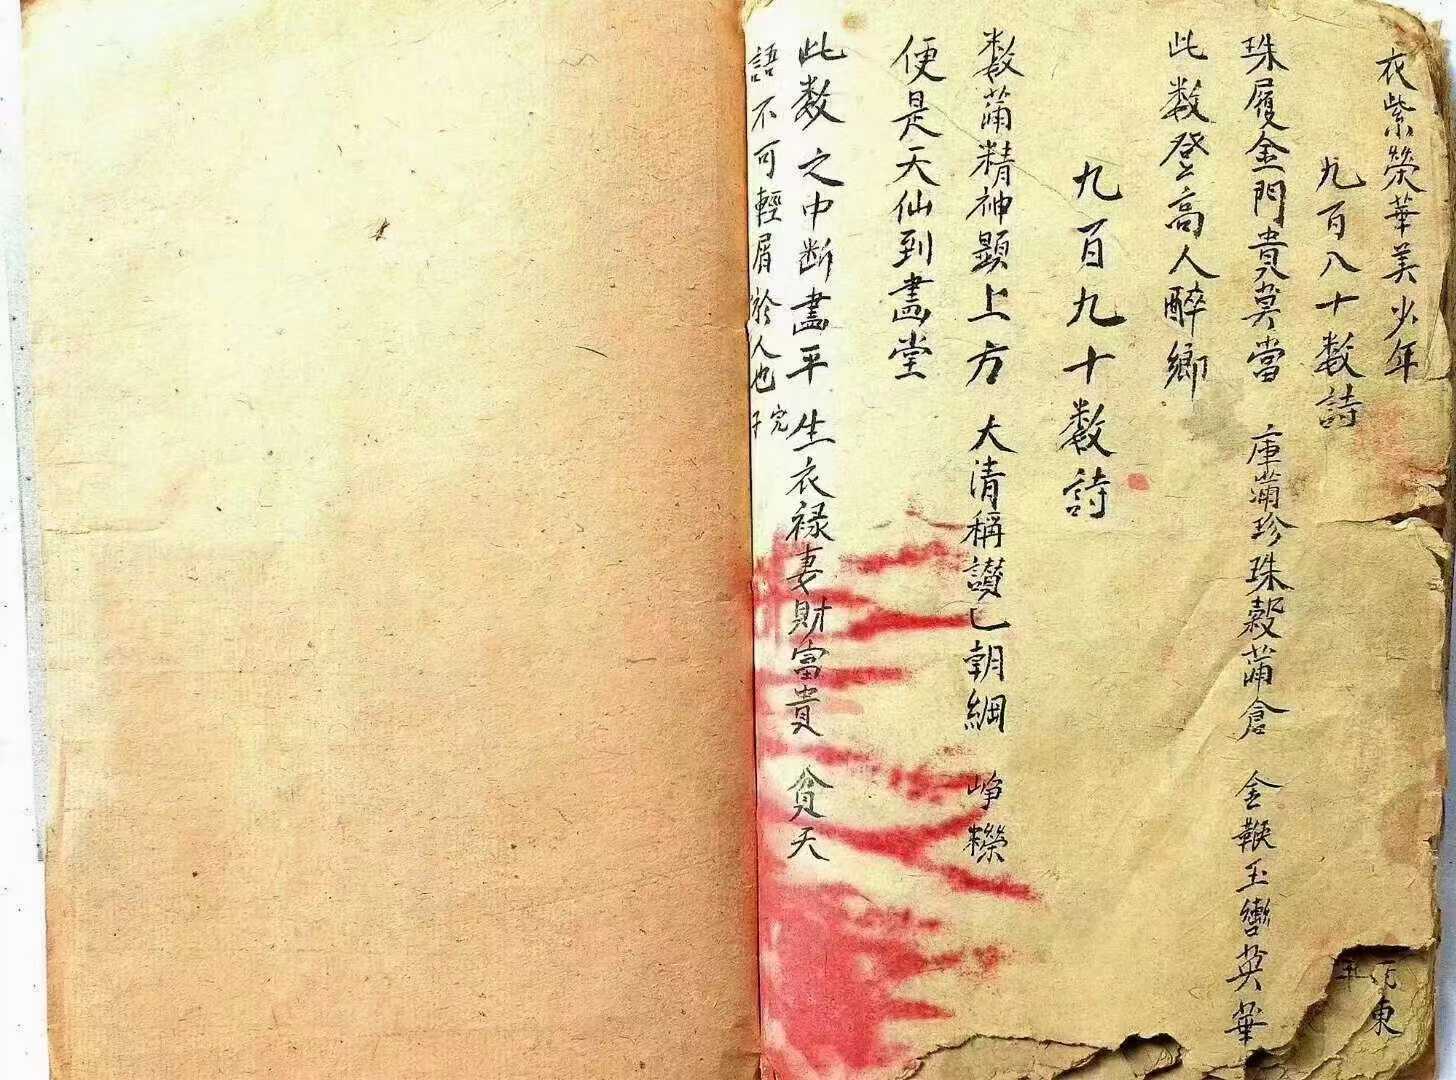 衣紫榮華美少年
九百八十数詩
珠履金門貴莫當 庫蒲珍珠穀蒲倉 金鞭玉轡英華
此数登高人醉鄉
九百九十数詩
数蒲精神顯上方 大清稱讃已朝綱 崢嶸
便是天仙到畵堂
此数之中断盡平生衣禄妻財富貴 貧天
語不可輕屑於人也 完
東